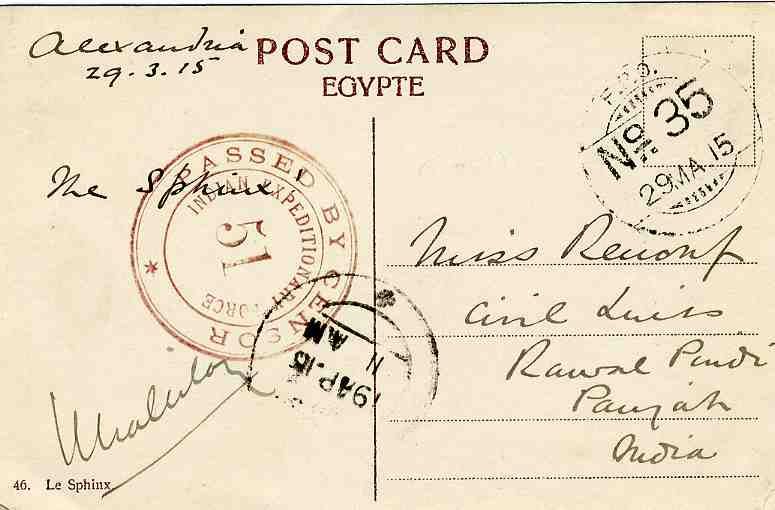 Alexandria
29.3.15
POST CARD
EGYPTE
The Sphinx
PASSED BY CENSOR
INDIAN EXPEDITIONARY FORCE
51
F.P.O.
No 35
29 MA 15
Miss Renouf
Civil Lines
Rawal Pindi
Panjab
India
19 AP. 15
11 AM
46. Le Sphinx